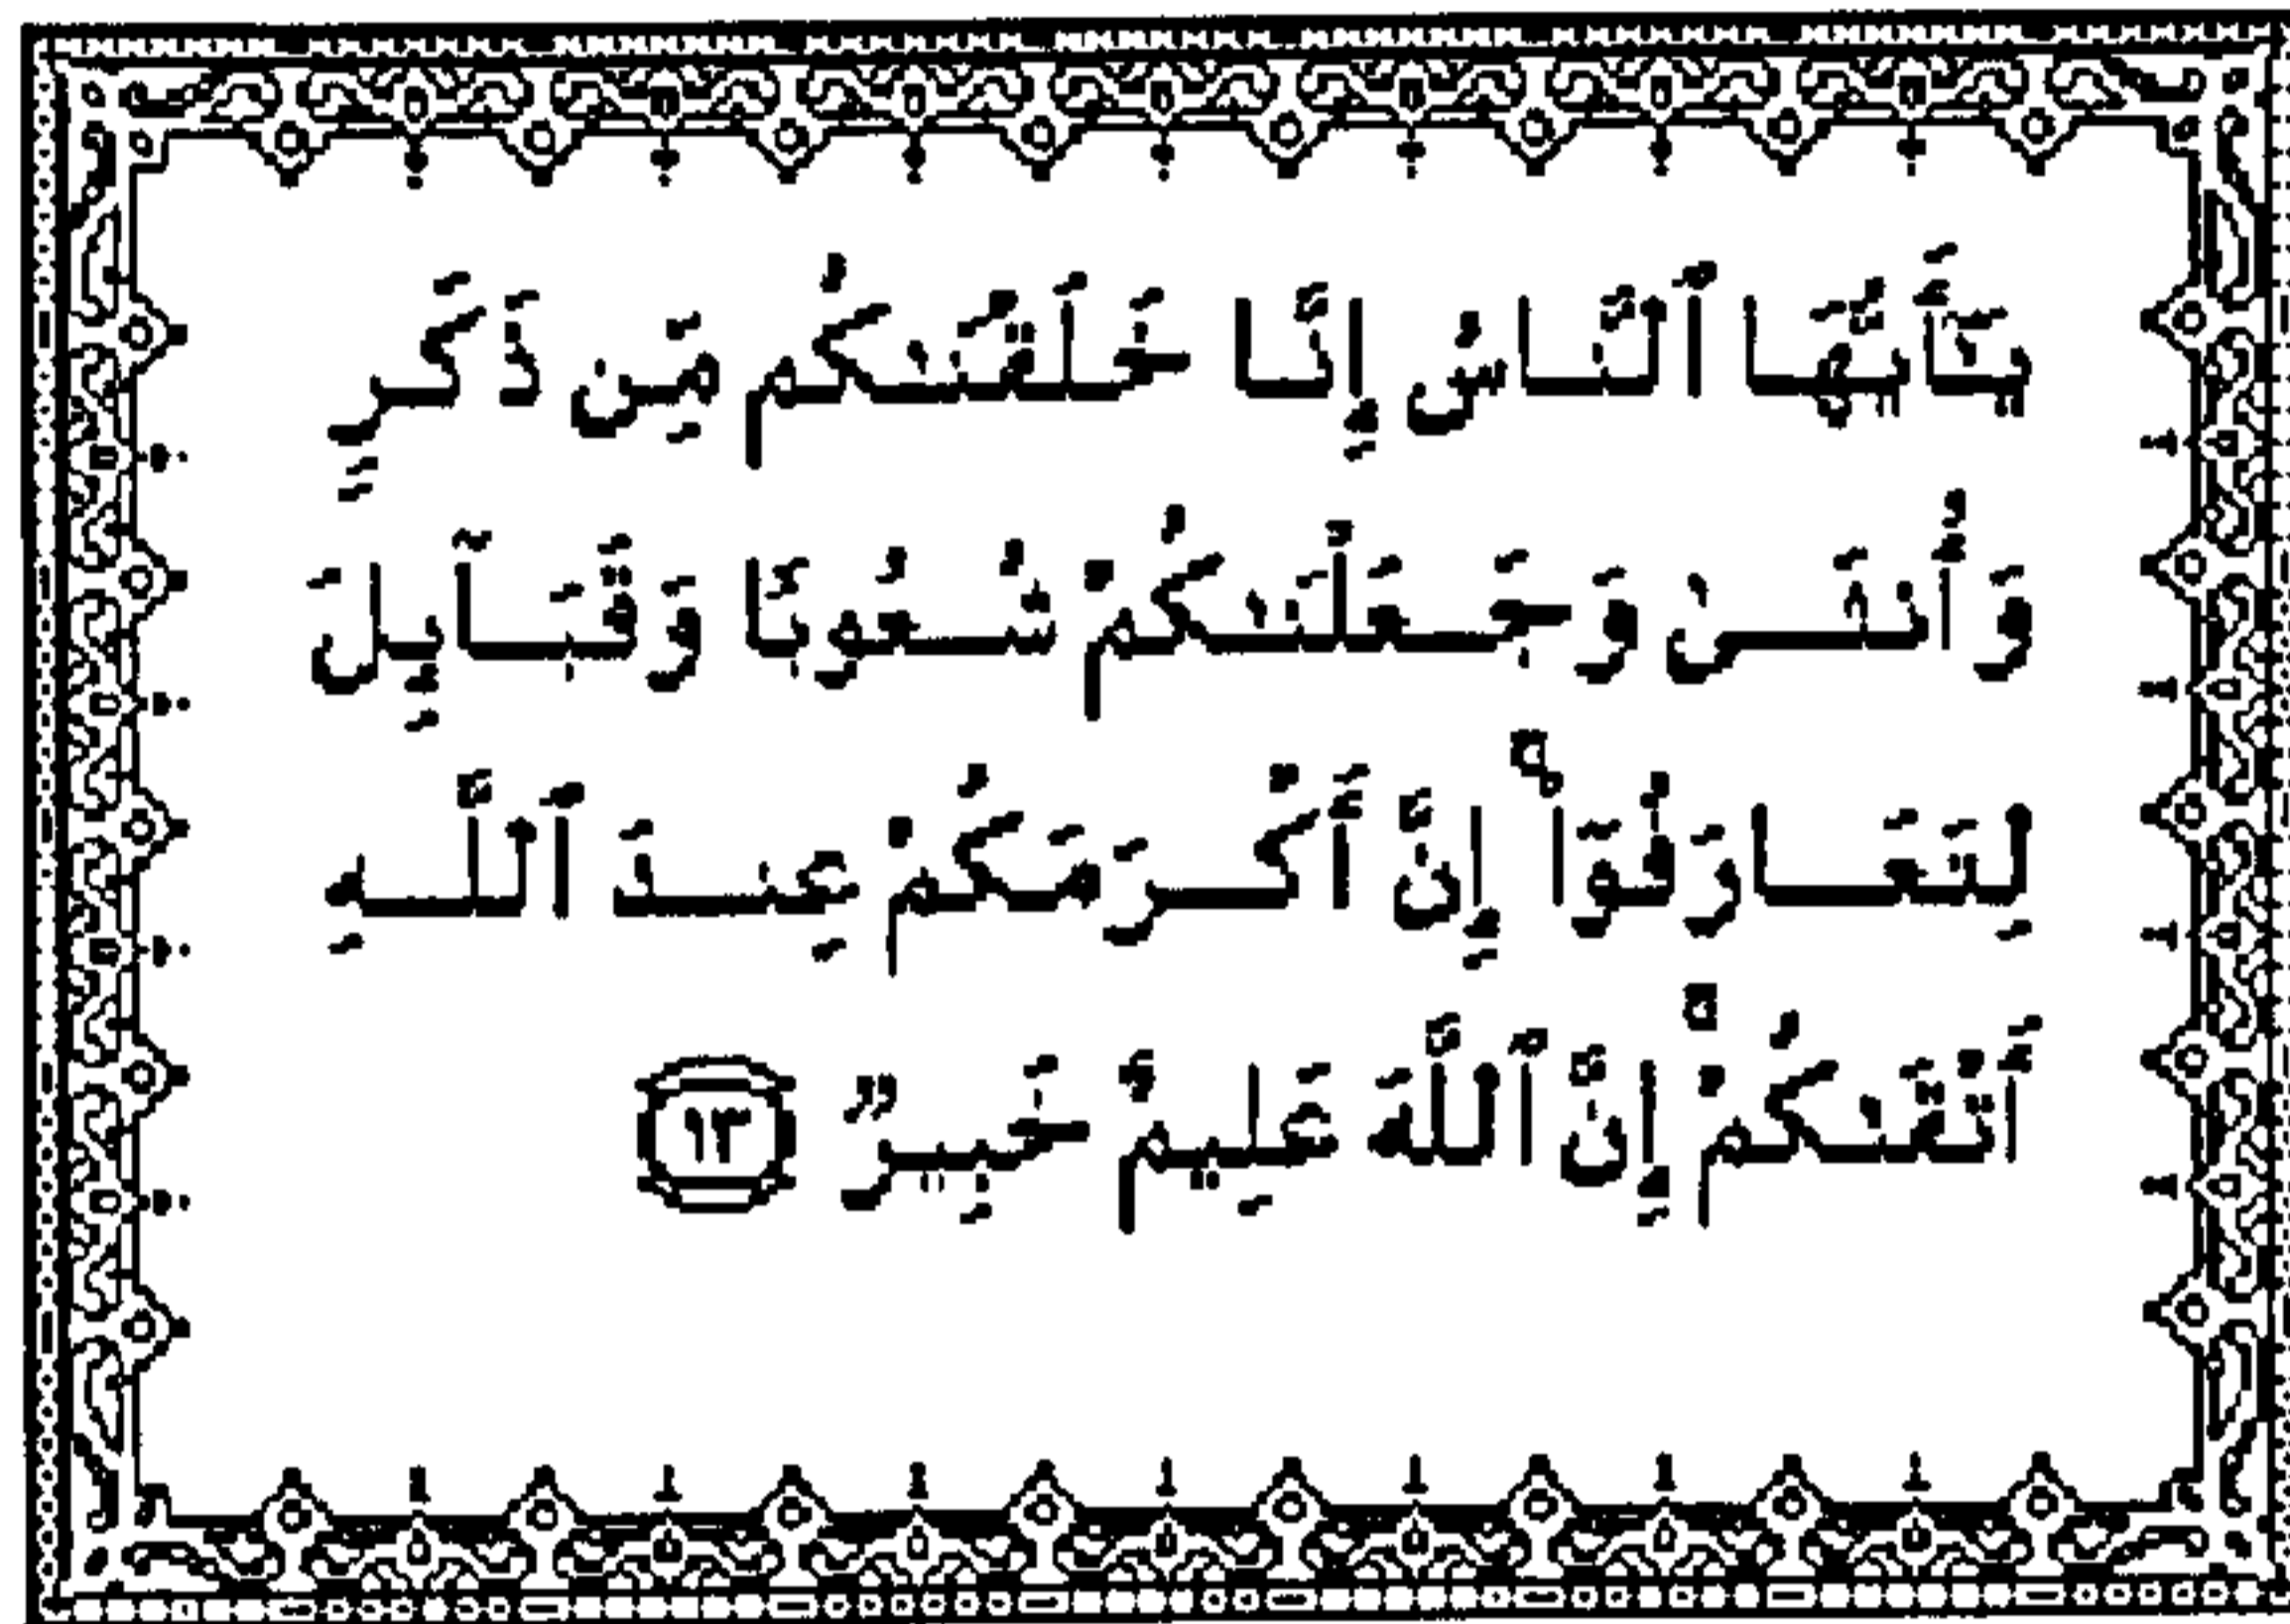 يَـٰٓأَيُّهَا ٱلنَّاسُ إِنَّا خَلَقْنَـٰكُم مِّن ذَكَرٍ
وَأُنثَىٰ وَجَعَلْنَـٰكُمْ شُعُوبًا وَقَبَآئِلَ
لِتَعَارَفُوٓا۟ ۚ إِنَّ أَكْرَمَكُمْ عِندَ ٱللَّهِ
أَتْقَىٰكُمْ ۚ إِنَّ ٱللَّهَ عَلِيمٌ خَبِيرٌ ١٣